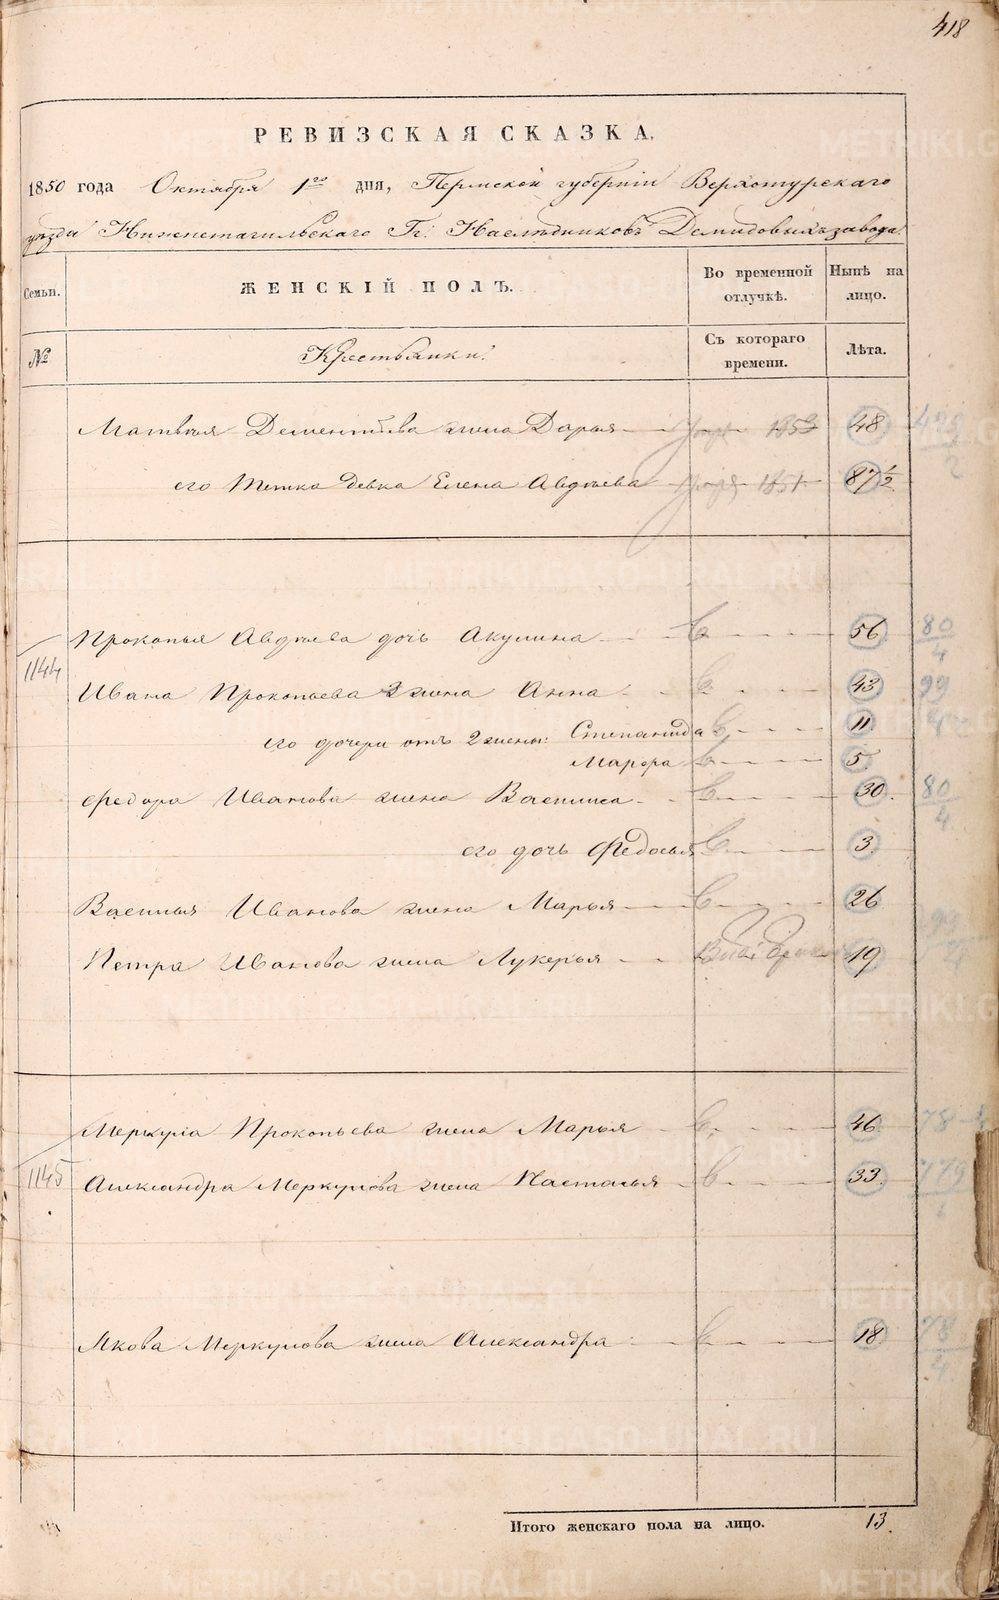 418
РЕВИЗСКАЯ СКАЗКА.
1850 года Октября 1го дня, Пермской губернiи Верхотурскаго
уѣзда Нижнетагильскаго Гг. Наслѣдниковъ Демидовыхъ завода.
Семьи. ЖЕНСКІЙ ПОЛЪ. Во временной отлучкѣ. Нынѣ на лицо.
№ Крестьянки. Съ котораго времени. Лѣта.
Матвѣя Дементьева жена Дарья 1853 48
его тетка девка Елена Авдѣева 1851 87 1/2
Прокопья Авдѣева дочь Акулина 56 80/4
1144
Ивана Прокопьева 2 жена Анна 43 99
его дочери отъ 2 жены: Степанида 11
Марфа 5
Федора Иванова жена Василиса 30 80/4
его дочь Федосья 3
Василья Иванова жена Марья 26
Петра Иванова жена Лукерья 19
Меркула Прокопьева жена Марья 46 78
1145
Александра Меркулова жена Настасья 33 779
Якова Меркулова жена Александра 18 78/4
Итого женскаго пола на лицо. 13.
METRIKI.GASO-URAL.RU